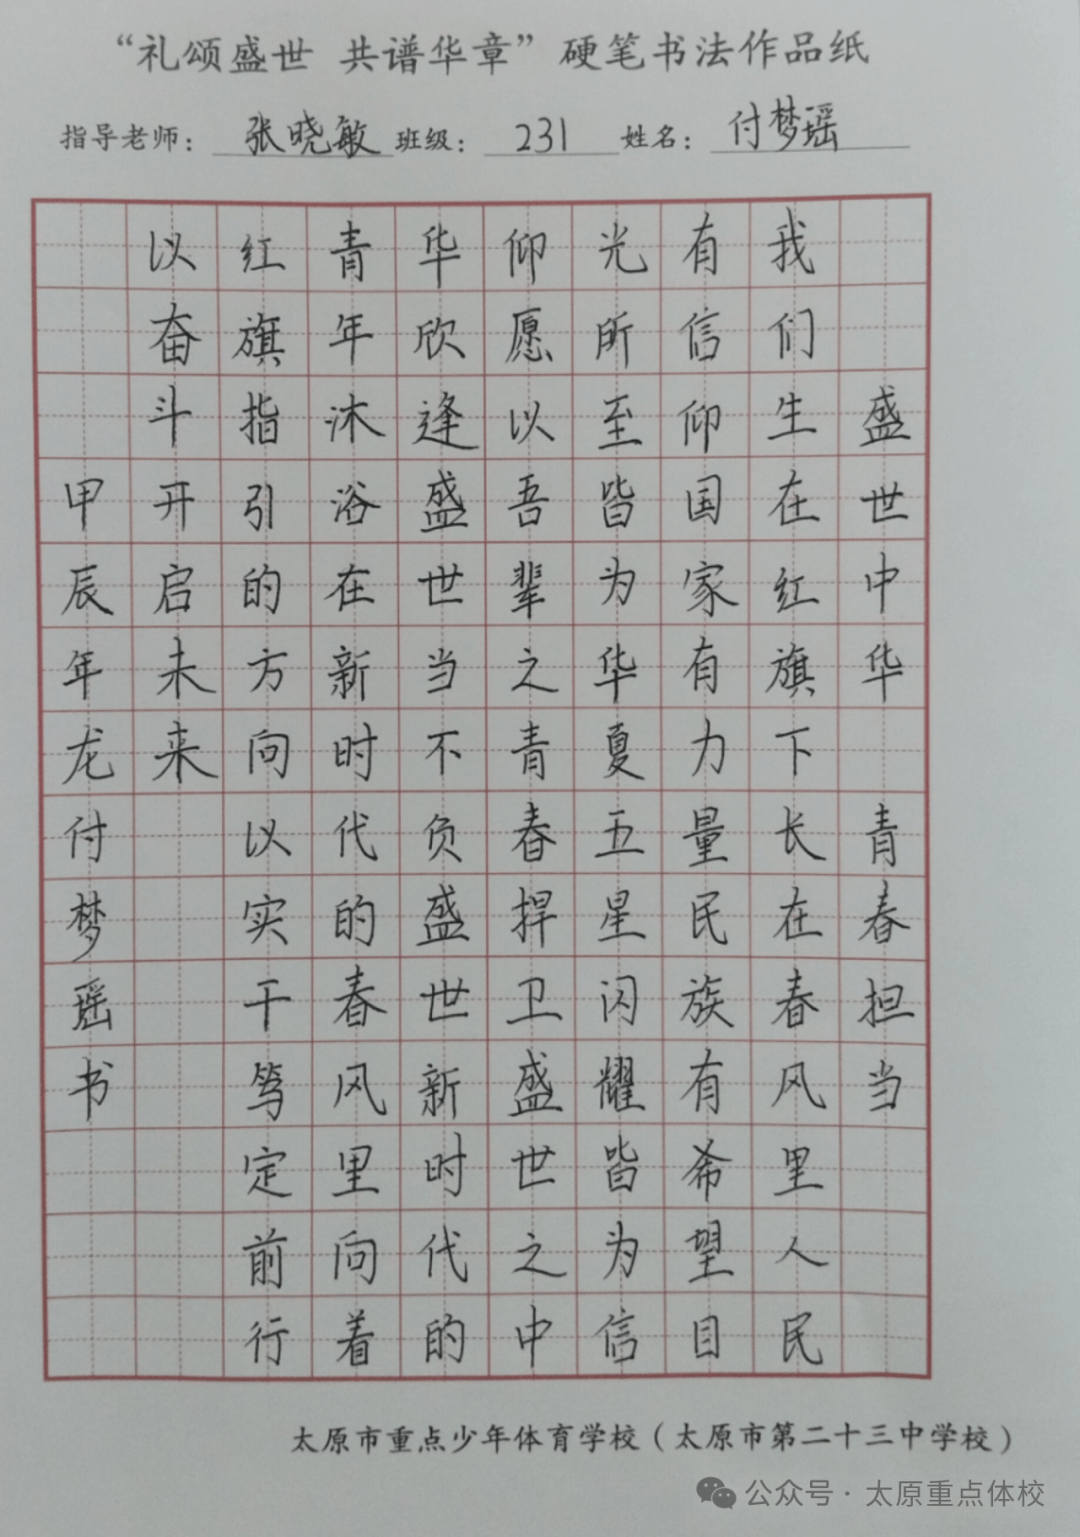 “礼颂盛世 共谱华章”硬笔书法作品纸
指导老师：张晓敏 班级：231 姓名：付梦瑶
盛世中华 青春担当
我们生在红旗下长在春风里人民
有信仰国家有力量民族有希望目
光所至皆为华夏五星闪耀皆为信
仰愿以吾辈之青春捍卫盛世之中
华欣逢盛世当不负盛世新时代的
青年沐浴在新时代的春风里向着
红旗指引的方向以实干笃定前行
以奋斗开启未来
甲辰年龙付梦瑶书
太原市重点少年体育学校（太原市第二十三中学校）
公众号·太原重点体校